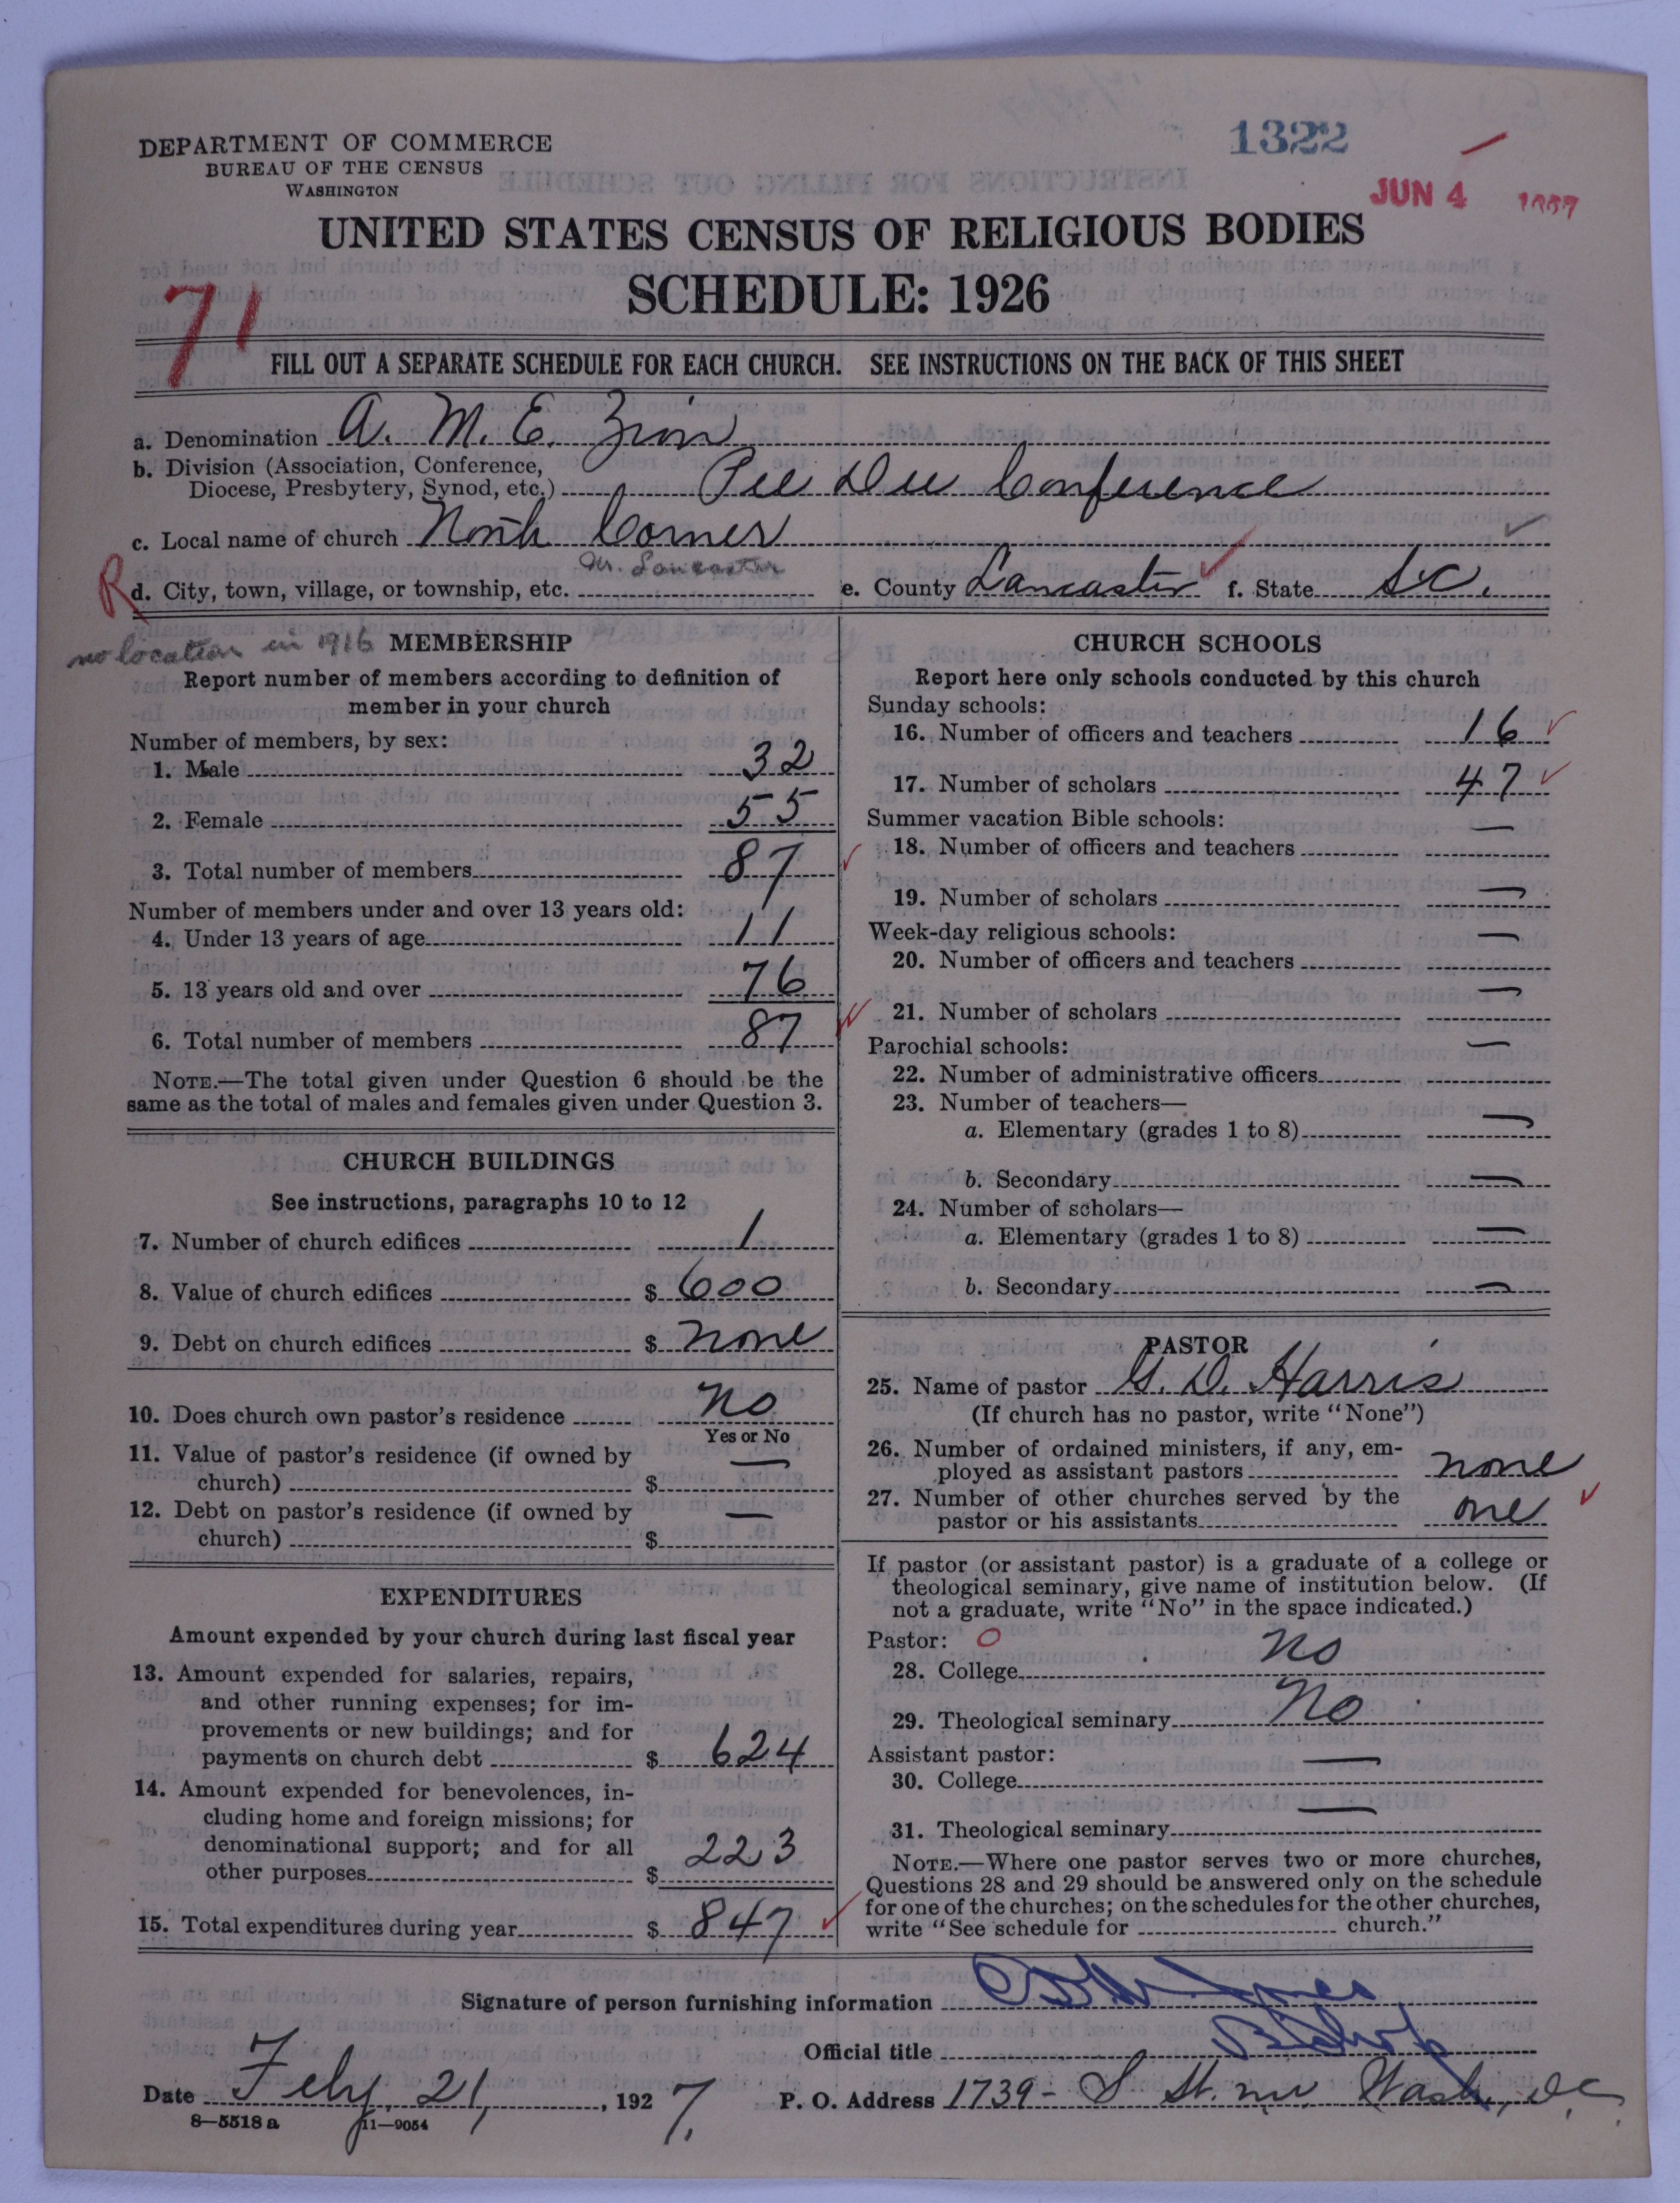 1322
JUN 4 1927
DEPARTMENT OF COMMERCE
BUREAU OF THE CENSUS
WASHINGTON
UNITED STATES CENSUS OF RELIGIOUS BODIES
SCHEDULE: 1926
71
FILL OUT A SEPARATE SCHEDULE FOR EACH CHURCH. SEE INSTRUCTIONS ON THE BACK OF THIS SHEET
a. Denomination A. M. E. Zion
b. Division (Association, Conference,
Diocese, Presbytery, Synod, etc.) Pee Dee Conference
c. Local name of church North Corner
R d. City, town, village, or township, etc. Nr. Lancaster e. County Lancaster f. State S.C.
no location in 1916
MEMBERSHIP
Report number of members according to definition of
member in your church
Number of members, by sex:
1. Male 32
2. Female 55
3. Total number of members 87
Number of members under and over 13 years old:
4. Under 13 years of age 11
5. 13 years old and over 76
6. Total number of members 87
NOTE.—The total given under Question 6 should be the
same as the total of males and females given under Question 3.
CHURCH BUILDINGS
See instructions, paragraphs 10 to 12
7. Number of church edifices 1
8. Value of church edifices $ 600
9. Debt on church edifices $ none
10. Does church own pastor's residence No
Yes or No
11. Value of pastor's residence (if owned by
church) $ —
12. Debt on pastor's residence (if owned by
church) $ —
EXPENDITURES
Amount expended by your church during last fiscal year
13. Amount expended for salaries, repairs,
and other running expenses; for im-
provements or new buildings; and for
payments on church debt $ 624
14. Amount expended for benevolences, in-
cluding home and foreign missions; for
denominational support; and for all
other purposes $ 223
15. Total expenditures during year $ 847
CHURCH SCHOOLS
Report here only schools conducted by this church
Sunday schools:
16. Number of officers and teachers 16
17. Number of scholars 47
Summer vacation Bible schools:
18. Number of officers and teachers —
19. Number of scholars —
Week-day religious schools:
20. Number of officers and teachers —
21. Number of scholars —
Parochial schools:
22. Number of administrative officers —
23. Number of teachers—
a. Elementary (grades 1 to 8) —
b. Secondary —
24. Number of scholars—
a. Elementary (grades 1 to 8) —
b. Secondary —
PASTOR
25. Name of pastor G. D. Harris
(If church has no pastor, write "None")
26. Number of ordained ministers, if any, em-
ployed as assistant pastors none
27. Number of other churches served by the
pastor or his assistants one
If pastor (or assistant pastor) is a graduate of a college or
theological seminary, give name of institution below. (If
not a graduate, write "No" in the space indicated.)
Pastor: O
28. College No
29. Theological seminary No
Assistant pastor:
30. College —
31. Theological seminary —
NOTE.—Where one pastor serves two or more churches,
Questions 28 and 29 should be answered only on the schedule
for one of the churches; on the schedules for the other churches,
write "See schedule for church."
Signature of person furnishing information Jones
Official title Bishop
Date Feby. 21, 1927. P. O. Address 1739 - S St. nw Wash, D.C.
8—5518 a 11—9054